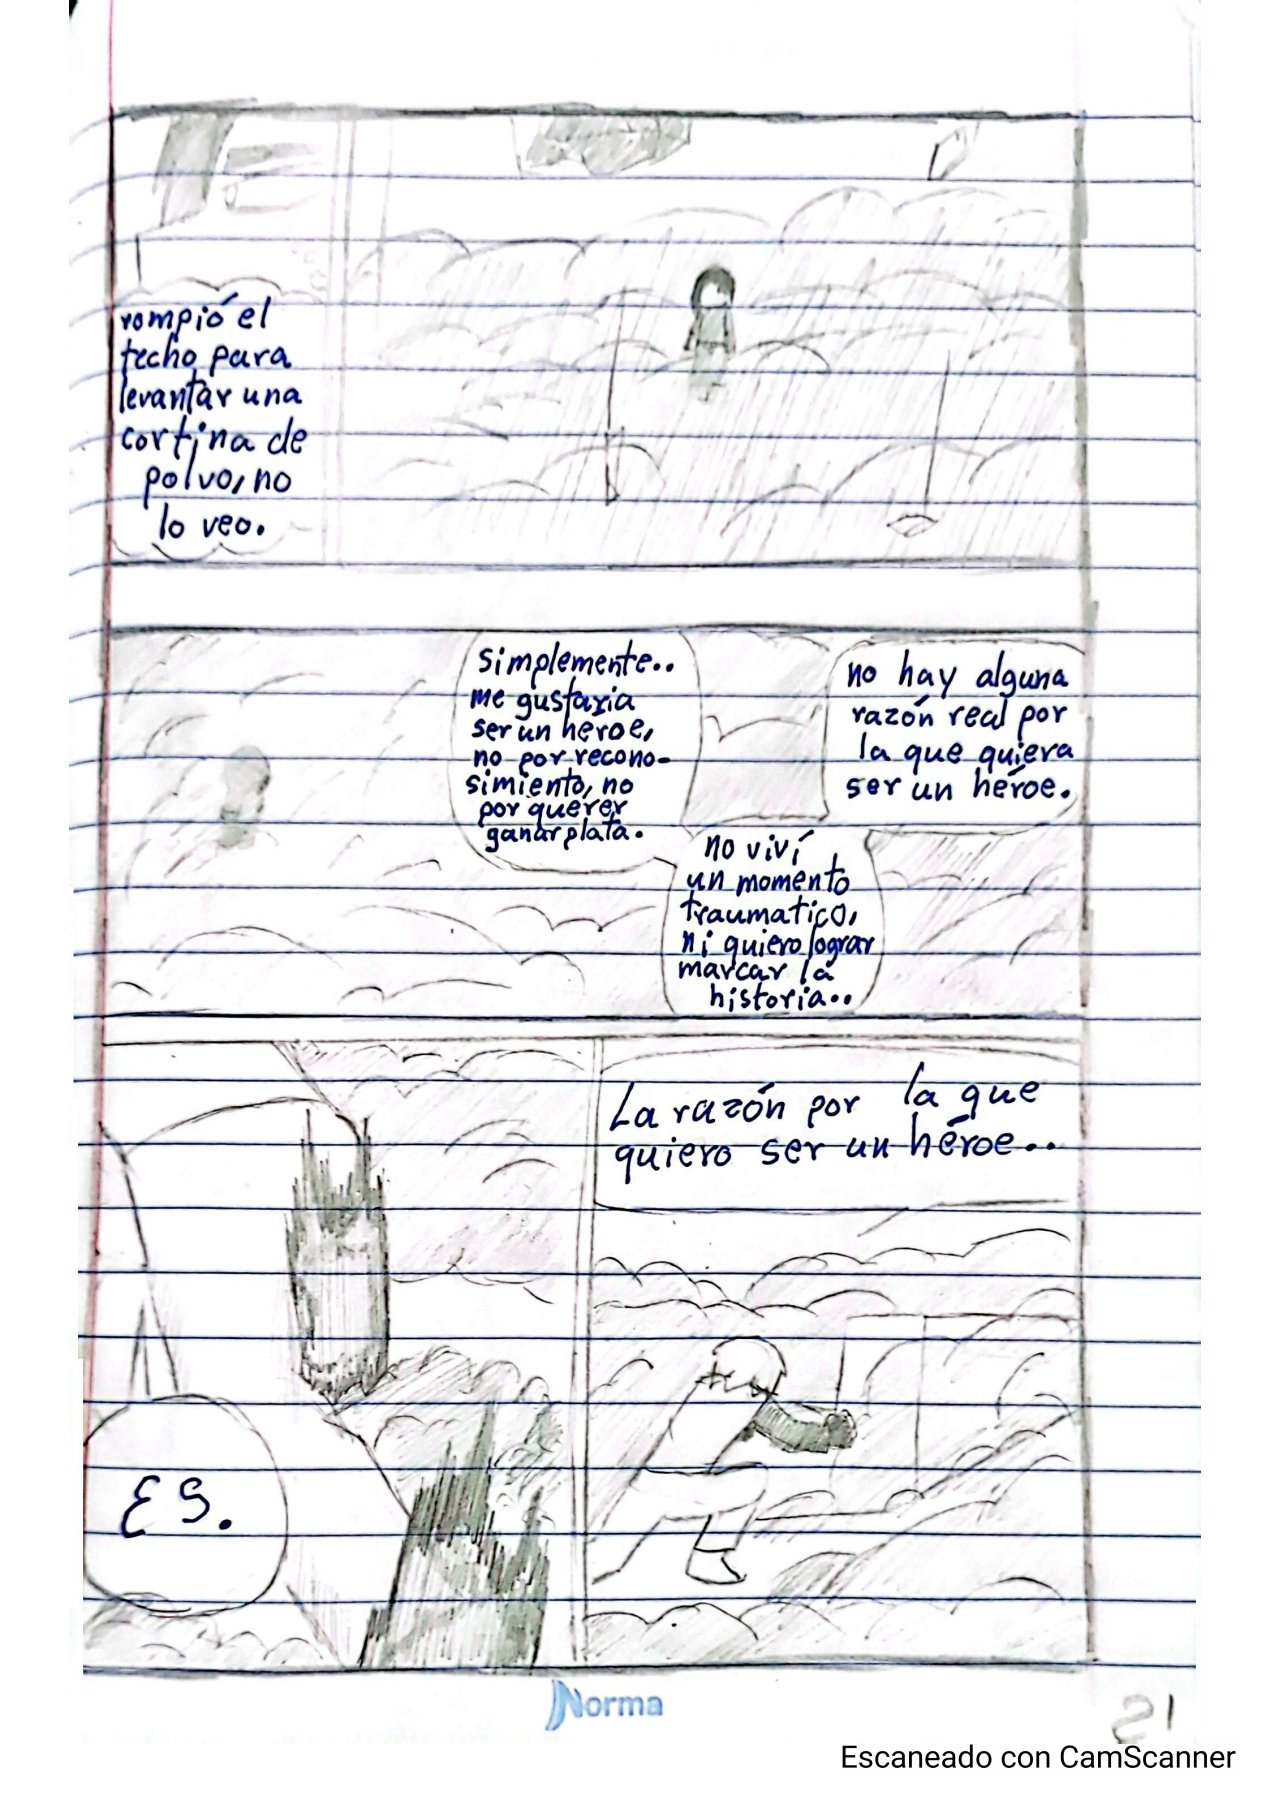 rompió el
techo para
levantar una
cortina de
polvo, no
lo veo.
no hay alguna
razón real por
la que quiera
ser un héroe.
no viví
un momento
traumatico,
ni quiero lograr
marcar la
historia..
simplemente..
me gustaria
ser un heroe,
no por recono-
simiento, no
por querer
ganar plata.
La razón por la que
quiero ser un héroe..
ES.
Norma
21
Escaneado con CamScanner